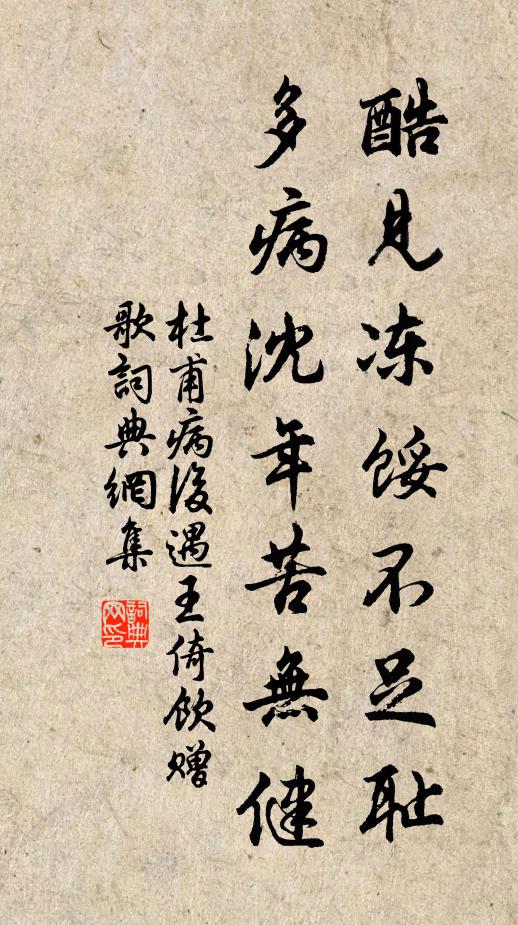 酷見冻餒不足耻
多病沈年苦無健
杜甫病後遇王倚飲赠
歌詞典網集
詞典
网印